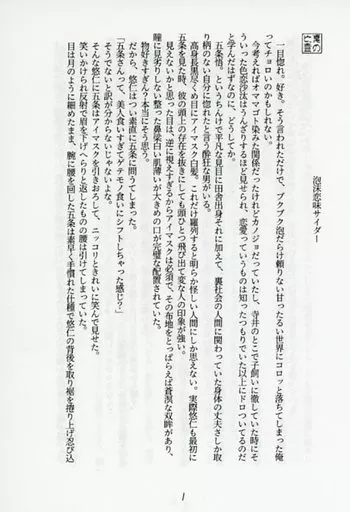 泡沫恋味サイダー
一目惚れ。好き。そう言われただけで、ブクブク泡だらけ頼りない甘ったるい世界にコロッと落ちてしまった俺
ってチョロいのかもしれない。
今考えればオママゴト染みた関係だったけれどカノジョだっていたし、寺井のとこで子飼いに徹していた時にそ
ういった色恋沙汰はうんざりするほど見せられ、恋愛っていうものは知ったつもりでいた以上にドロついてるのだ
と学んだはずなのに、どうしてか。
五条悟。というちんけで平凡な見目に田舎出身それに加えて、裏社会の人間に関わっていた身体の丈夫さしか取
り柄のない自分に惚れたと言う酔狂な男がいる。
高身長黒尽くめに目にアイマスク白髪。これだけ羅列すると明らか怪しい人間にしか思えない。実際悠仁も最初に
五条を見た時、彼の頭一つの存在を抜きにしても頭ひとつ飛び出て変な人の印象が強い。
見えないかと思った目は、逆に視えすぎるからアイマスクは必須で、その布地をとっぱらえば蒼溟な双眸があり、
瞳に見劣りしない整った鼻梁白い肌薄いが大きめの口が完璧な配置されていた。
物好きすぎん？本当にそう思う。
だから、悠仁はつい素直に五条に問うてしまった。
「五条さんって、美人食いすぎてゲテモノ食いにシフトしちゃった感じ？」
そうでないと訳が分からないじゃないよな。
そんな悠仁に五条はアイマスクを引きおろして、ニッコリときれいに笑んで見せた。
笑いかけられ反射で眉を下げへらりと返したものの腰は引けてしまっていた。
目は月のように細めたまま、腕に腰を回した五条は素早く手慣れた仕種で悠仁の背後を取り裾を捲り上げ忍び込
1